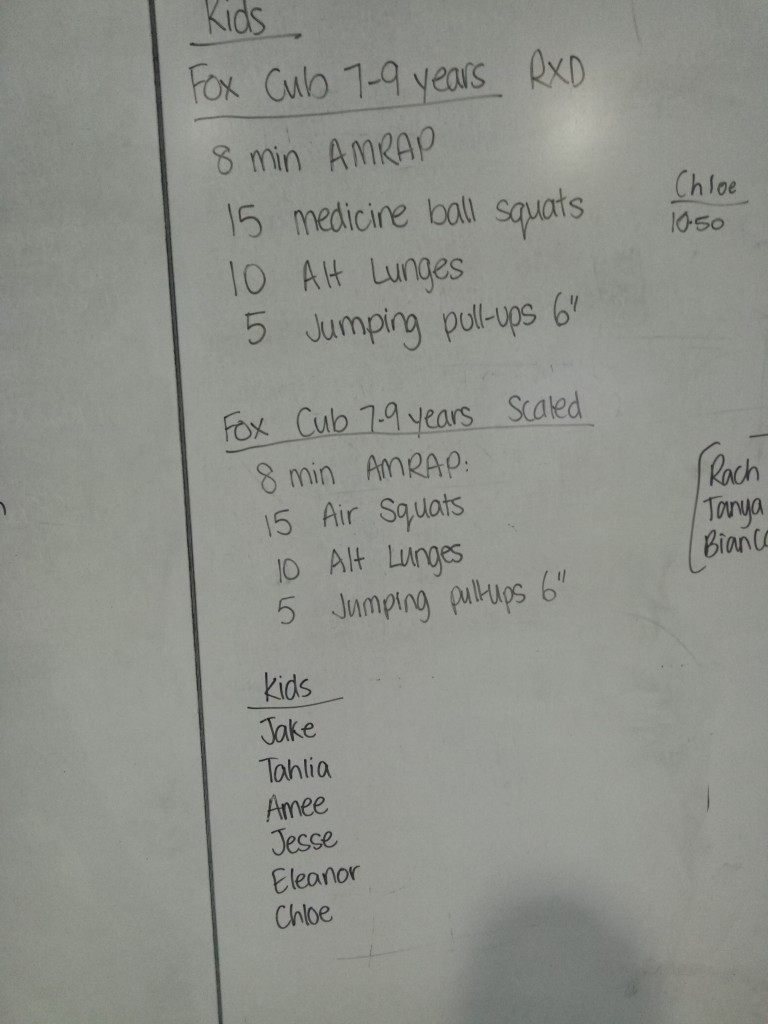 Kids
Fox Cub 7-9 years RXD
8 min AMRAP
15 medicine ball squats
10 Alt Lunges
5 Jumping pull-ups 6"
Chloe
10.50
Fox Cub 7-9 years Scaled
8 min AMRAP:
15 Air Squats
10 Alt Lunges
5 Jumping pull-ups 6"
Rach
Tanya
Kids
Jake
Tahlia
Amee
Jesse
Eleanor
Chloe